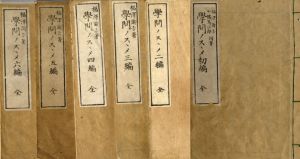 福澤諭吉著
學問ノスヽメ初編
全
學問ノスヽメ二編
全
福澤諭吉著
學問ノスヽメ三編
全
福澤諭吉著
學問ノスヽメ四編
全
福澤諭吉著
學問ノスヽメ五編
全
福澤諭吉著
學問ノスヽメ六編
全